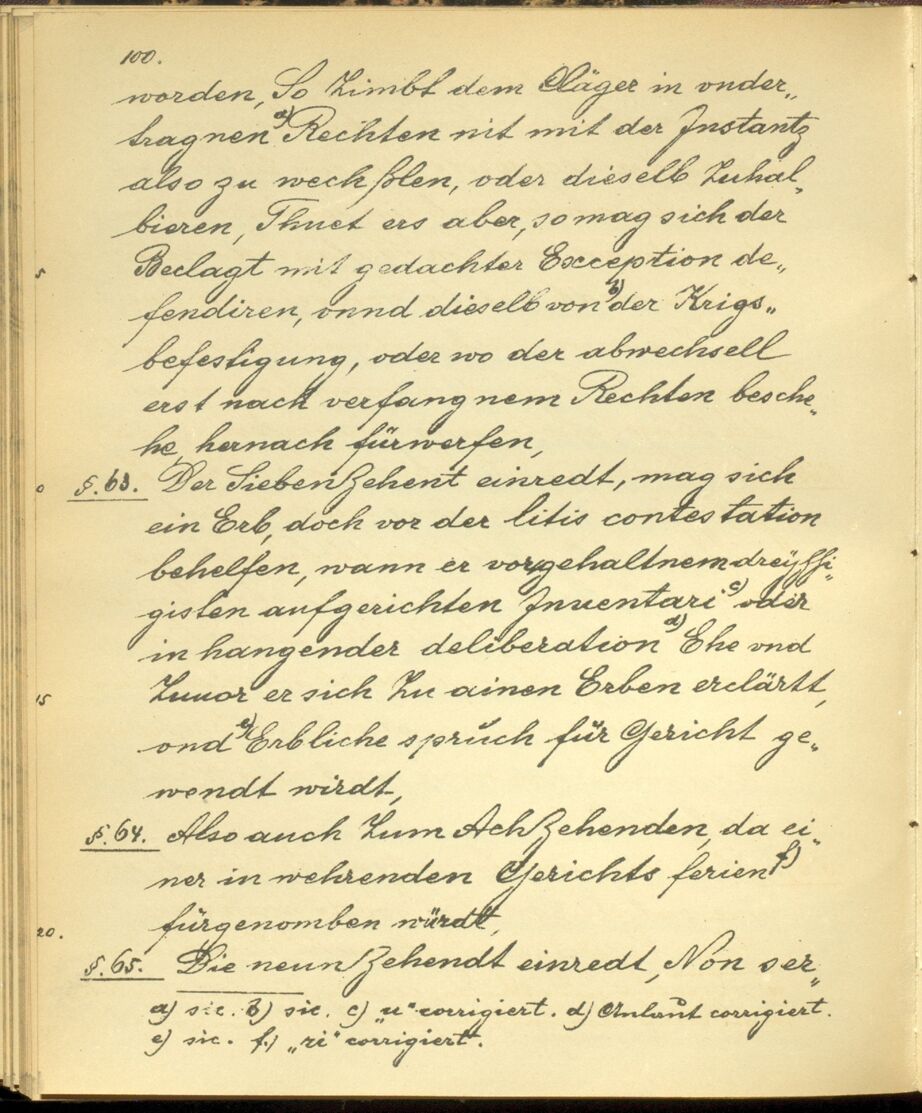 100.
worden, So Zimbt dem Cläger in vnder„
tragnen a) Rechten nit mit der Jnstantz
also zu wechßlen, oder dieselb Zuhal„
bieren, Thuet ers aber, so mag sich der
5 Beclagt mit gedachter Exception de„
fendiren, vnnd dieselb von b) der Krigs„
befestigung, oder wo der abwechsell
erst nach verfangnem Rechten besche„
he, hernach fürwerfen,
§. 63. Der Siebenzehent einredt, mag sich
ein Erb, doch vor der litis contestation
behelfen, wann er vorgehaltnem dreÿssi„
gisten aufgerichten Jnuentari c) oder
in hangender deliberation d) Ehe vnd
15 Zuuor er sich Zu ainen Erben erclärtt,
vnd e) Erbliche spruch für Gericht ge„
wendt wirdt,
§. 64. Also auch Zum Achzehenden, da ei„
ner in wehrenden Gerichts ferien f)
20. fürgenomben würdt,
§. 65. Die neunzehendt einredt, Non ser„
a) sic. b) sic. c) „u“ corrigiert. d) Anlaut corrigiert.
e) sic. f.) „ri“ corrigiert.